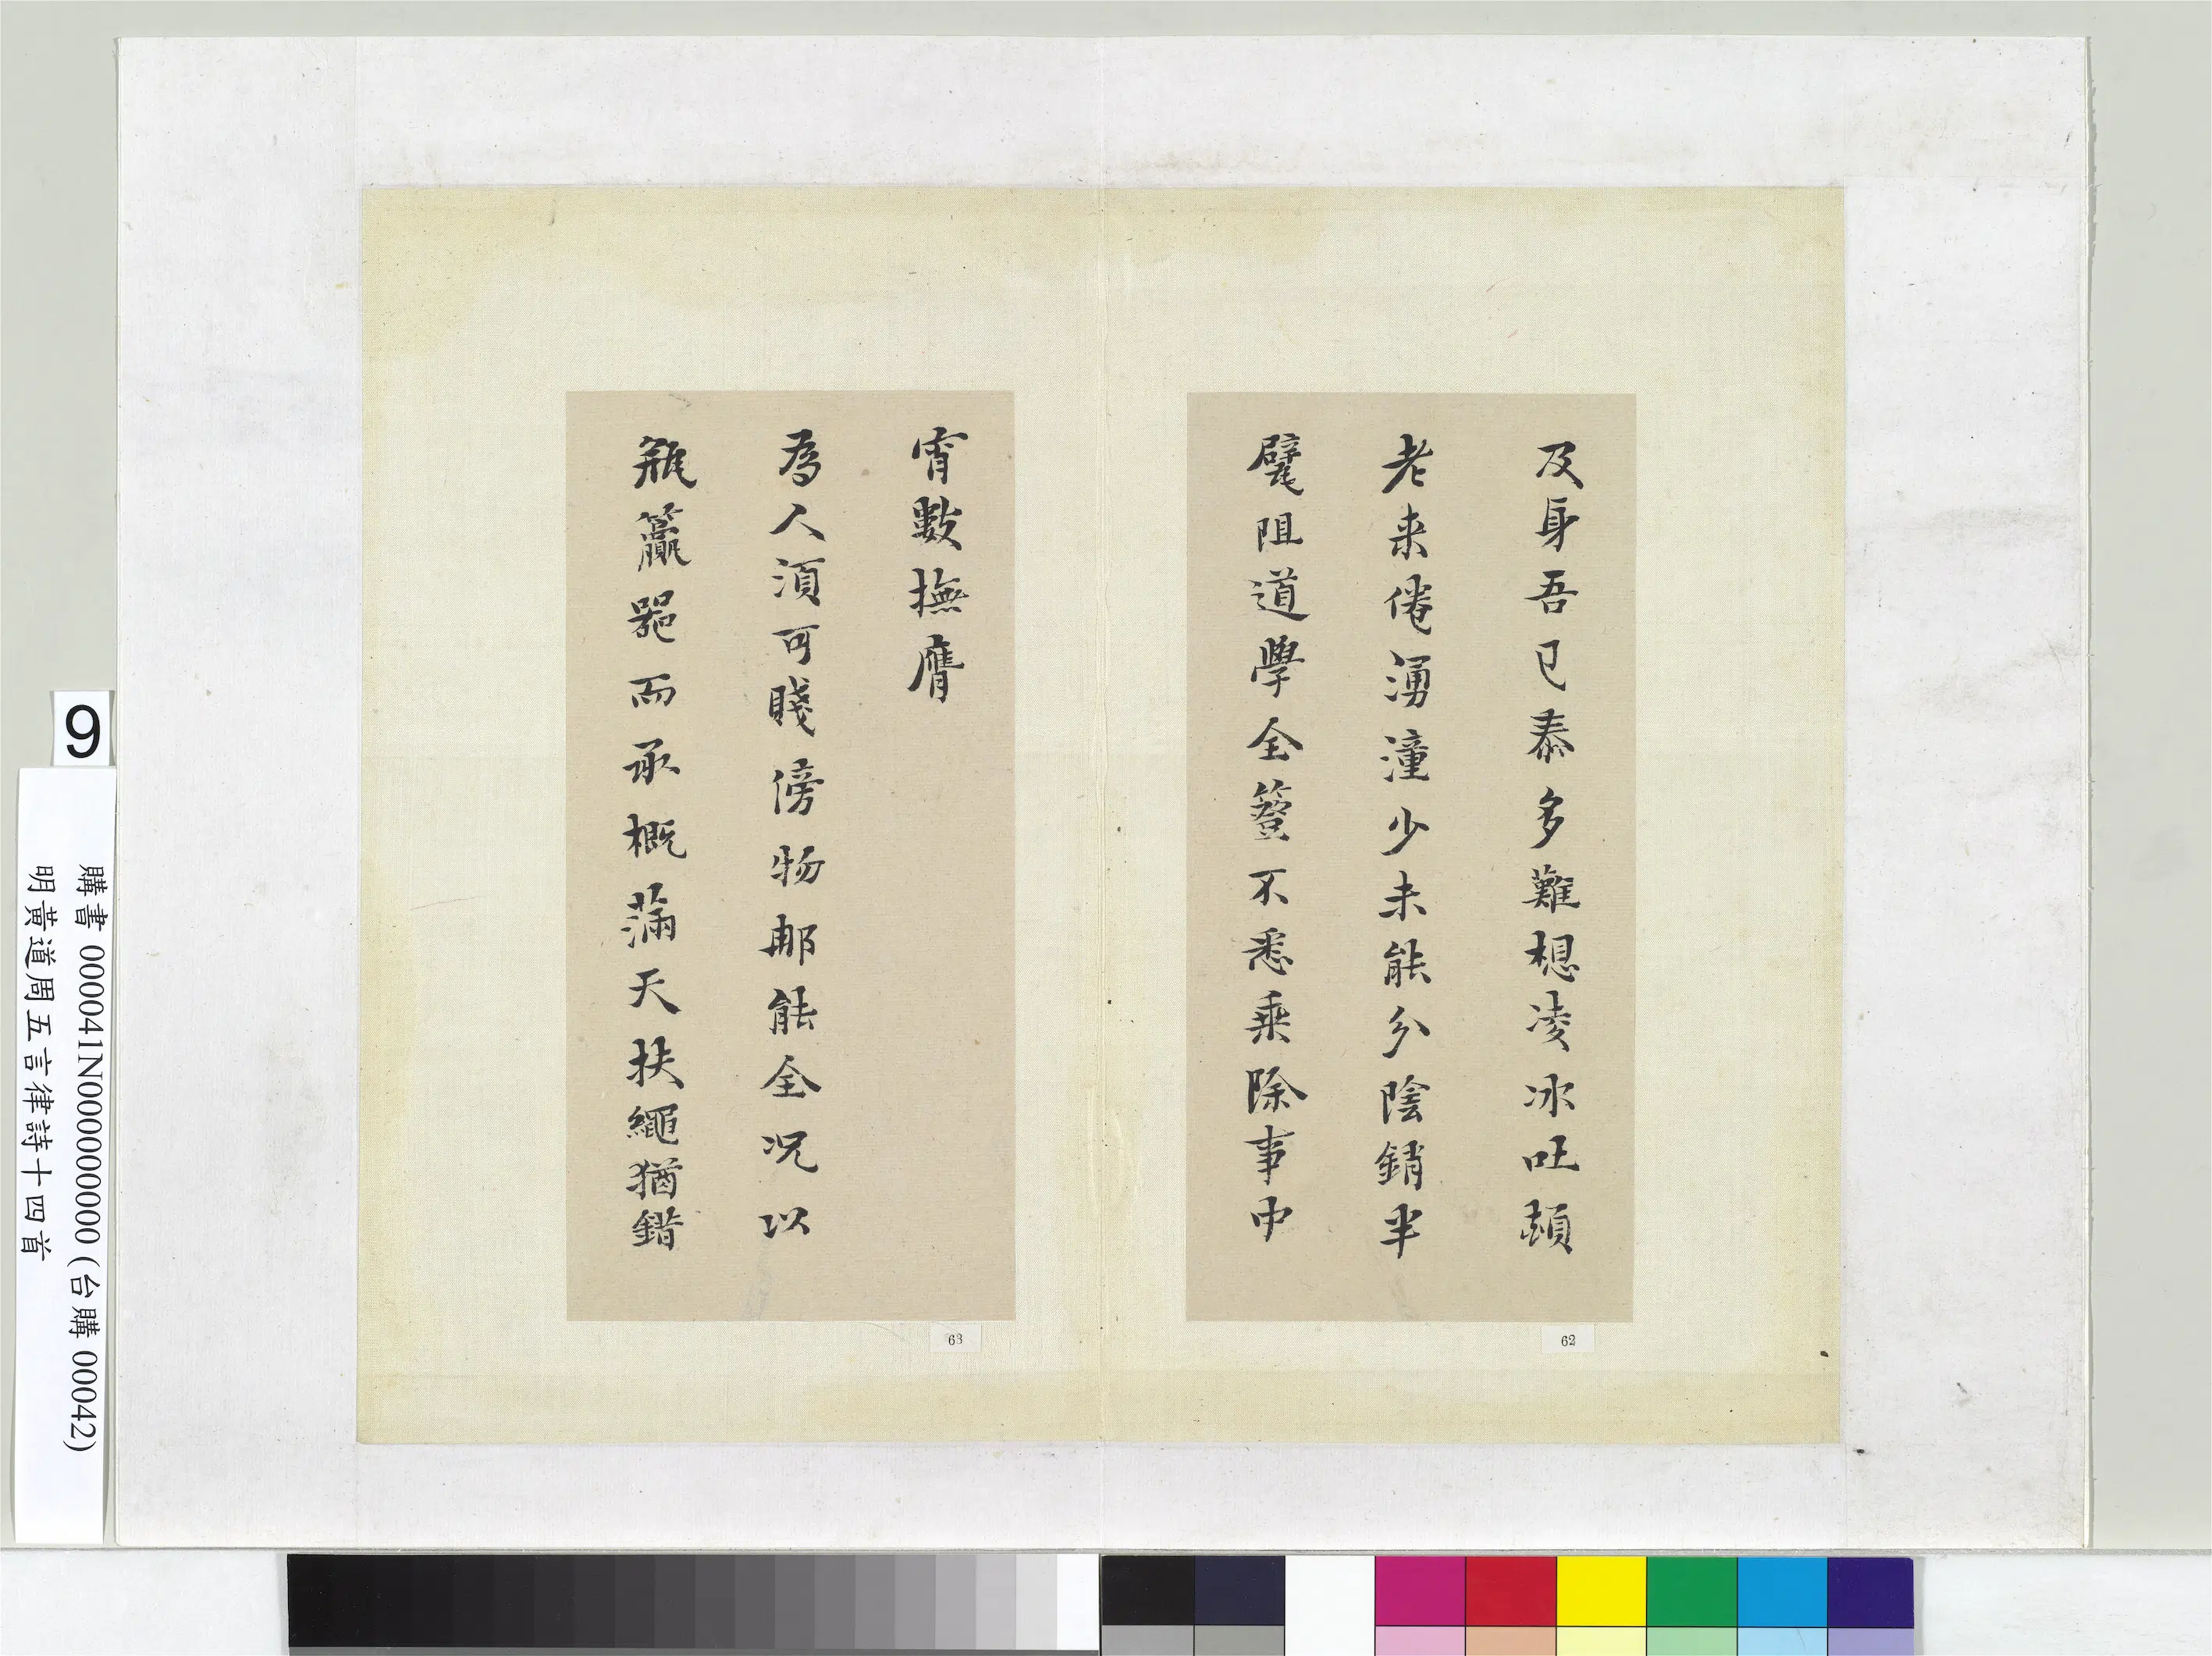 及身吾已泰多難想凌冰吐頿
老来倦湧潼少未能分陰銷半
躄阻道學全簦不悉乗除事中
宵數撫膺
為人湏可賤傍物那能全况以
瓶籯器而承概滿天扶繩猶錯
62
63
9
購書 000041N000000000 (台購 00042)
明黃道周五言律詩十四首